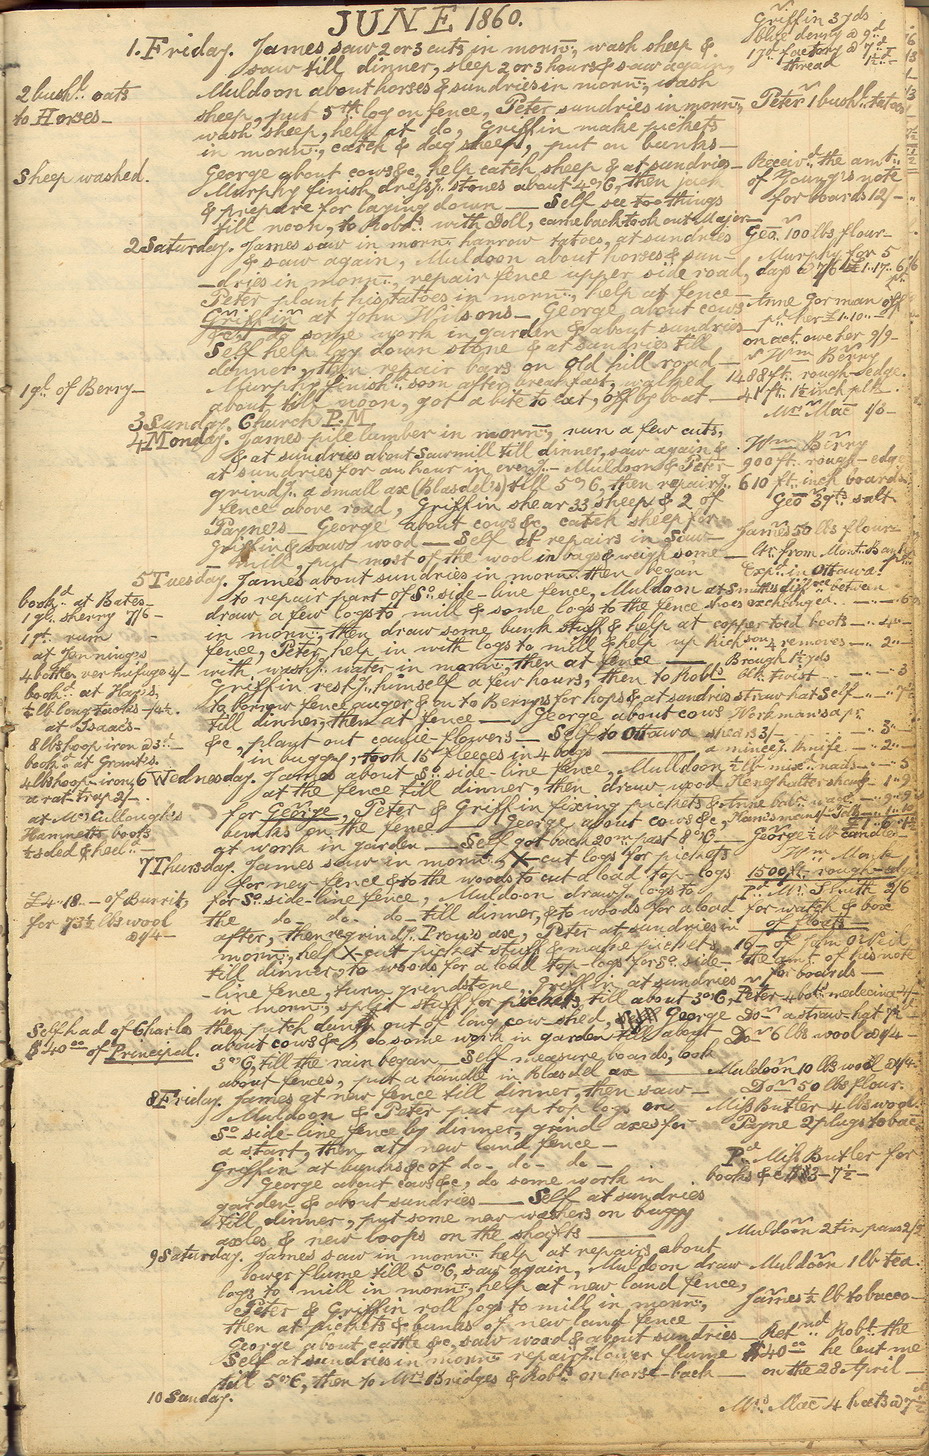 JUNE 1860.
1. Friday. James saw 2 or 3 cuts in morn:, wash sheep &
saw till dinner, sleep 2 or 3 hours & saw again,
Muldoon about horses & sundries in morn:, wash
sheep, put 5th log on fence, Peter sundries in morn:,
wash sheep, help at do, Griffin make pickets
in morn:, catch & dag sheep, put on bunks—
George about cows &c, help catch sheep & at sundries—
Murphy finish dress'g. stones about 4 o'C, then pick
& prepare for laying down — Self see to things
till noon, to Robts. with Doll, came back took out Major—
2 Saturday. James saw in morn: harrow tatoes, at sundries
& saw again, Muldoon about horses & sun-
-dries in morn:, repair fence upper side road,
Peter plant his tatoes in morn:, help at fence—
Griffin at John Wilsons— George about cows
&c, do some work in garden & about sundries—
Self help lay down stone & at sundries till
dinner, then repair bars on Old hill road—
Murphy finish: soon after breakfast, walked
about till noon, got a bite to eat, off by boat—
3 Sunday. Church P.M.
4 Monday. James pile lumber in morn:, run a few cuts,
& at sundries about Sawmill till dinner, saw again &
at sundries for an hour in even'g.— Muldoon & Peter
grind'g. a small ax (Blasdel's) till 5 o'C, then repair'g.
fence above road, Griffin shear 33 sheep & 2 of
Payne's— George about cows &c, catch sheep for
Griffin & saw wood — Self at repairs in Saw-
-mill, put most of the wool in bags & weigh some—
5 Tuesday. James about sundries in morn: then began
to repair part of So. side-line fence, Muldoon
draw a few logs to mill & some logs to the fence
in morn:, then draw some bunk stuff & help at
fence, Peter help in with logs to mill & help up
with wash'g. water in morn:, then at fence —
Griffin rest'g. himself a few hours, then to Robts.
to borrow fence auger & on to Berrys for hops & at sundries
till dinner, then at fence — George about cows
&c, plant out caulie-flowers — Self to Ottawa
in buggy, took 15 fleeces in 4 bags
6 Wednesday. James about So. side-line fence, Mulldoon
at the fence till dinner, then draw wood
for George, Peter & Griffin fixing pickets &
bunks on the fence — George about cows &c,
at work in garden — Self got back 20 m. past 8 o'C—
7 Thursday. James saw in morn:, X-cut logs for pickets
for new fence & to the woods to cut a load top-logs
for So. side-line fence, Muldoon draw'g. logs to
the do. do. do— till dinner, & to woods for a load
after, then regrind'g. Prow's ax, Peter at sundries in
morn:, help X-cut picket stuff & make pickets
till dinner, to woods for a load top-logs for So. side-
-line fence, turn grindstone, Griffin at sundries
in morn:, split stuff for pickets, till about 3 o'C,
then pitch dung out of long cow shed, George
about cows &c, do some work in garden till about
3 o'C, till the rain began— Self measure boards, look
about fences, put a handle in Blasdel ax —
8 Friday. James at new fence till dinner, then saw—
Muldoon & Peter put up top logs on
So. side-line fence by dinner, grind axes for
a start, then at new land fence—
Griffin at bunks &c of do— do— do —
George about cows &c, do some work in
garden & about sundries — Self at sundries
till dinner, put some new washers on buggy
axles & new loops on the shafts —
9 Saturday. James saw in morn: help at repairs about
lower flume till 5 o'C, saw again, Muldoon draw
logs to mill in morn:, help at new land fence,
Peter & Griffin roll logs to mill in morn:,
then at pickets & bunks of new land fence —
George about cattle &c, saw wood & about sundries—
Self at sundries in morn: repair'g. lower flume
till 5 o'C, then to Mrs. Bridges & Robts. on horse-back—
10 Sunday.
2 bushl. oats
to Horses—
Sheep washed.
1 gl. of Berry—
bookd. at Bates
1 gl. sherry 7/6—
1 qt. rum —
at Jennings
4 bottles vermifuge
bookd. at Hay's,
½ lb long tacks
at Isaacs—
8 lbs hoop iron
bookd. at Grant's.
4 lbs hoop-iron
a rat trap 2/—
at McCullough's
Hammetts boots
½ soled & heeld.—
£4.18.— of Burritt,
for 73½ lbs wool
@ 1/4—
Self had of Charles
$40.00 of Principal.
Griffin 3 yds
blue denry @ 9d
17d factory @ 7½
thread
Peter 1 bushl. tatoes
Receivd. the amt.
of Young's note
for boards 12/—
Geo. 100 lbs flour—
Murphy for 5
days @ 7/6 £1.17..6
Anne Gorman off
pr. her £1.10..
on act. owe her 9/9—
Wm Berry
1488 ft. rough-edge
41 ft. 1½ inch plk.
Mrs. Mac 1/3—
Wm Berry
900 ft. rough-edge
610 ft. inch boards
Geo 3 qts. salt
James 50 lbs flour
Lr. from Mont. Bank
Expd. in Ottawa.
at Smiths diffce. between
shoes exchanged — 6
copper toed boots — 4
Richsons 4 removes — 2
Brough 12 yds
twist — 3
straw hat Self — 7½
Workman's a pr.
shears 3/— 3
a mince'g. knife — 2
Wm. Mark
1500 ft. rough-edge
Pd. Mr. Smith 2/6
for watch & box
of floats—
16— of John O'Neil
the amt. of his note
for boards —
Peter 4 bots. medecine
Do— a straw-hat
Do— 6 lbs wool @ 1/4—
Muldoon 10 lbs wool @ 1/4
Do— 50 lbs flour.
Miss Butler 4 lbs wool.
Payne 2 plugs tobac
Pd. Miss Butler for
books &c $13—7½—
Muldoon 2 tin pans 2/2
Muldoon 1 lb tea.
James ½ lb tobacco—
Retnd. Robt. the
$40.00 he lent me
on the 28 April—
Mrs. Mac 4 hats @ 7½